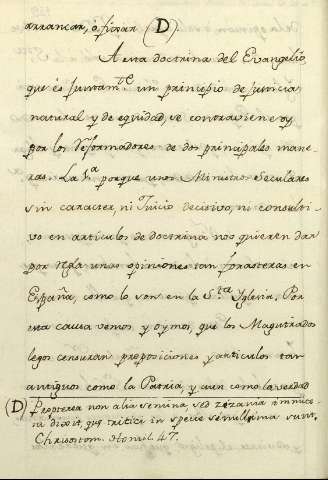 arrancar, ó firar (D).
A esta doctrina del Evangelio,
que és juntam.te un principio de justicia
natural y de equidad, se contraviene oy
por los Reformadores de dos principales mane-
ras. La 1.a porque unos Ministros Seculares
sin caracter, ni Juicio decisivo, ni consulti-
vo en articulos de doctrina nos quieren dar
por regla unas opiniones tan forasteras en
España, como lo son en la S.ta Yglesia. Por
esta causa vemos y oymos, que los Magistrados
legos censuran proposiciones y articulos tan
antiguos como la Patria, y aun como la verdad
(D) Propterea non alia semina sed zizania inimicu
m dixit, quæ tritici in specie simillima sunt.
Chrisostom. Homil. 47.